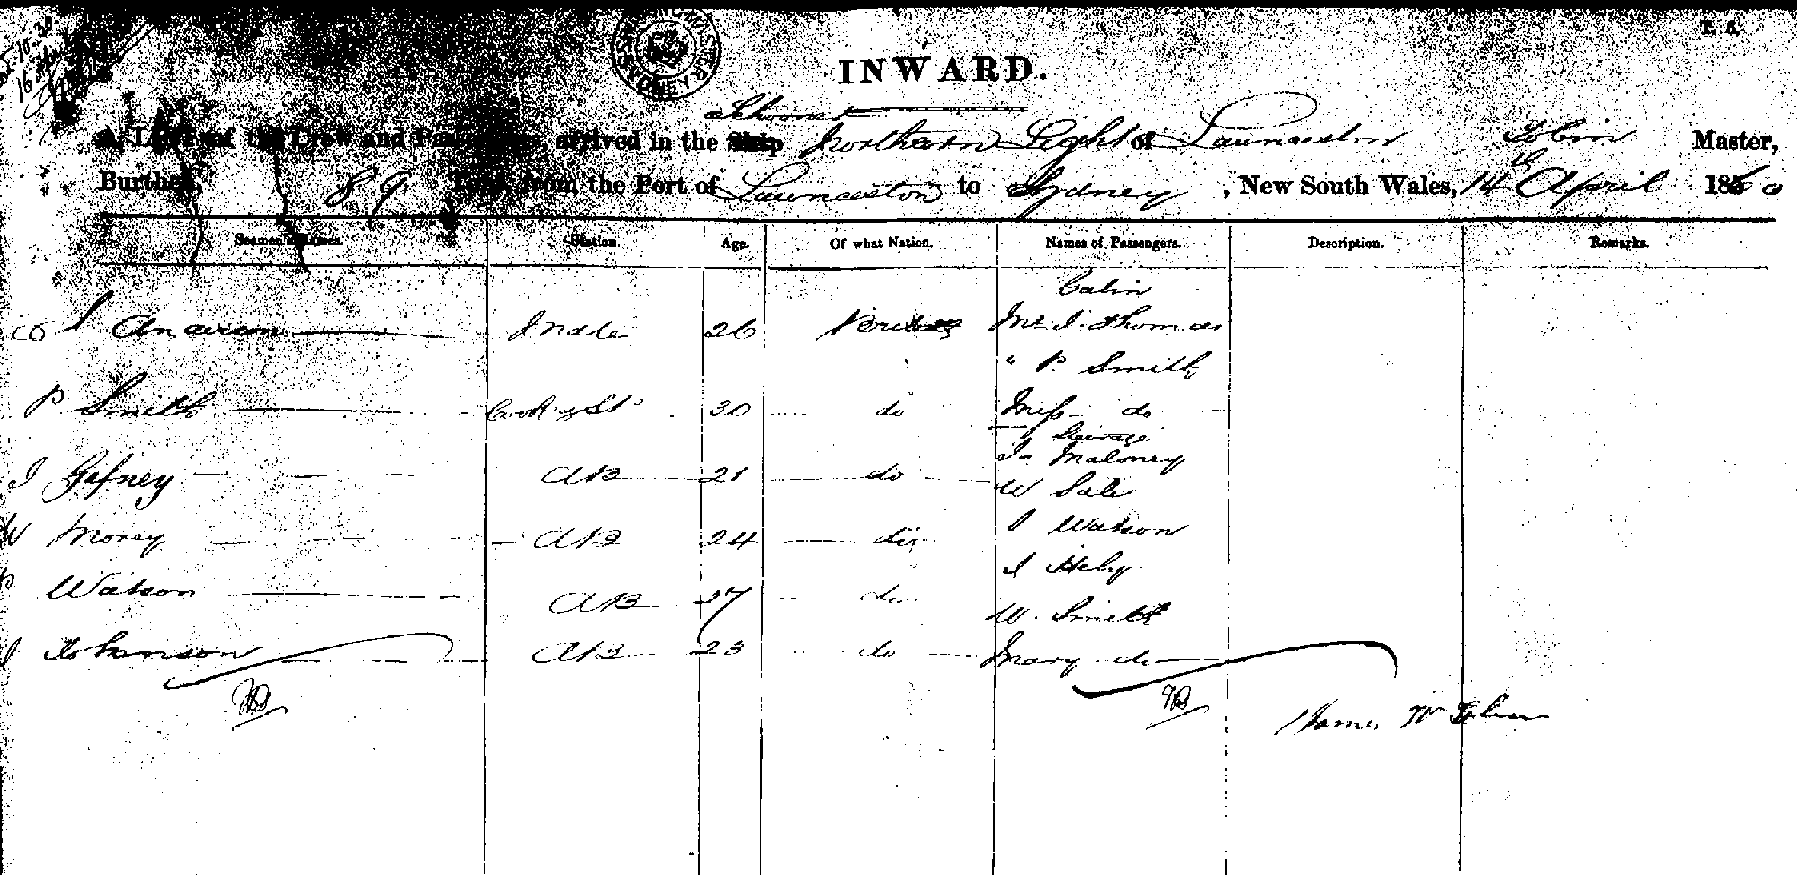 INWARD.
Schooner
A List of the Crew and Passengers, arrived in the Ship Northern Light of Launceston Tobin Master,
Burthen, 89 Tons, from the Port of Launceston to Sydney, New South Wales, 14th April 1860
Seamen's Names. Station. Age. Of what Nation. Names of Passengers. Description. Remarks.
Cabin
Mate 26 British Mr J. Thomas
" P. Smith
P Smith Cook & St 30 do Miss do
Steerage
J Maloney
J Gafney AB 21 do
W Sale
W Morey AB 24 do J Watson
J Hely
P Watson AB 27 do
W. Smith
J Johnson AB 23 do Mary do
James W Tobin